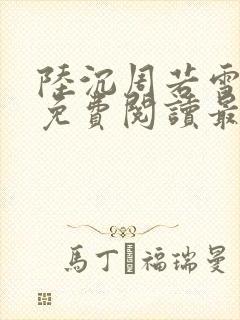 陸沉周若雪
免費閱讀最
馬丁 福瑞曼